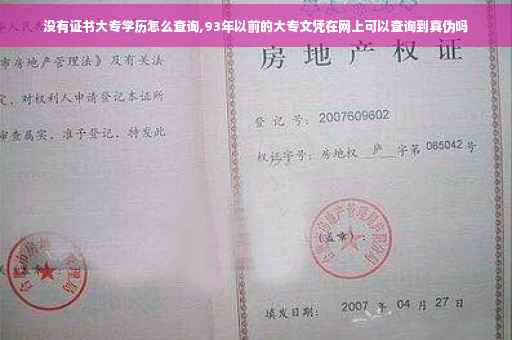 没有证书大专学历怎么查询,93年以前的大专文凭在网上可以查询到真伪吗
人民共
市房地产管理法》及有关法
定，对权利人申请登记本证所
审查属实，准予登记，特发此
房地产权证
登记号：2007609602
权证字号：房地权 庐 字第 085042 号
(盖章)：
填发日期：2007 年 04 月 27 日